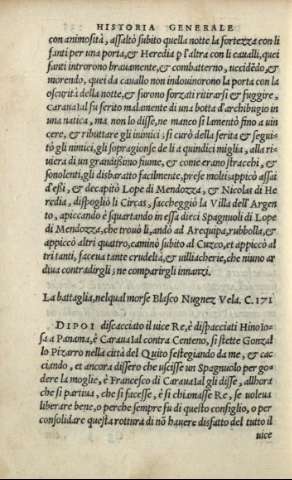 HISTORIA GENERALE
con animosità, assaltò subito quella notte la fortezza con li
fanti per una porta, & Heredia p l'altra con li caualli, quei
fanti introrono brauamente, & combatterno, uccidēdo, &
morendo, quei da cauallo non indouinorono la porta con la
oscurità della notte, & furono forzati ritirarsi & fuggire,
Carauaial fu ferito malamente di una botta d'archibugio in
una natica, ma non lo disse, ne manco si lamentò fino a uin
cere, & ributtare gli inimici: si curò della ferita & segui-
tò gli nimici, gli sopragionse de li a quindici miglia, alla ri
uiera di un grandissimo fiume, & come erano stracchi, &
sonolenti, gli disbarattò facilmente, prese molti appicò assai
d'essi, & decapitò Lope di Mendozza, & Nicolas di He
redia, dispogliò li Circas, saccheggiò la Villa dell'Argen
to, apiccando & squartando in essa dieci Spagnuoli di Lope
di Mendozza, che trouò lì, andò ad Arequipa, rubbolla, &
appiccò altri quattro, caminò subito al Cuzco, et appiccò al
tri tanti, faceua tante crudeltà, & uilliacherie, che niuno ar
diua contradirgli; ne comparirgli innanzi.
La battaglia, nelqual morse Blasco Nugnez Vela. C. 171
DIPOI discacciato il uice Re, è dispacciati Hinoio-
sa a Panama, è Carauaial contra Centeno, si stette Gonzal
lo Pizarro nella città del Quito festegiando da me, & cac
ciando, et ancora dissero che uscisse un Spagnuolo per go-
dere la moglie, è Francesco di Carauaial gli disse, allhora
che si partiua, che si facesse, è si chiamasse Re, se uoleua
liberare bene, o perche sempre fu di questo consiglio, o per
consolidare questa rottura di nō hauere disfatto del tutto il
uice